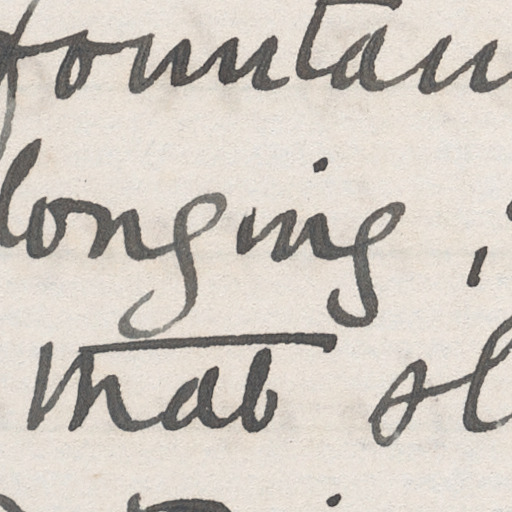 fountain
longing,
that sl